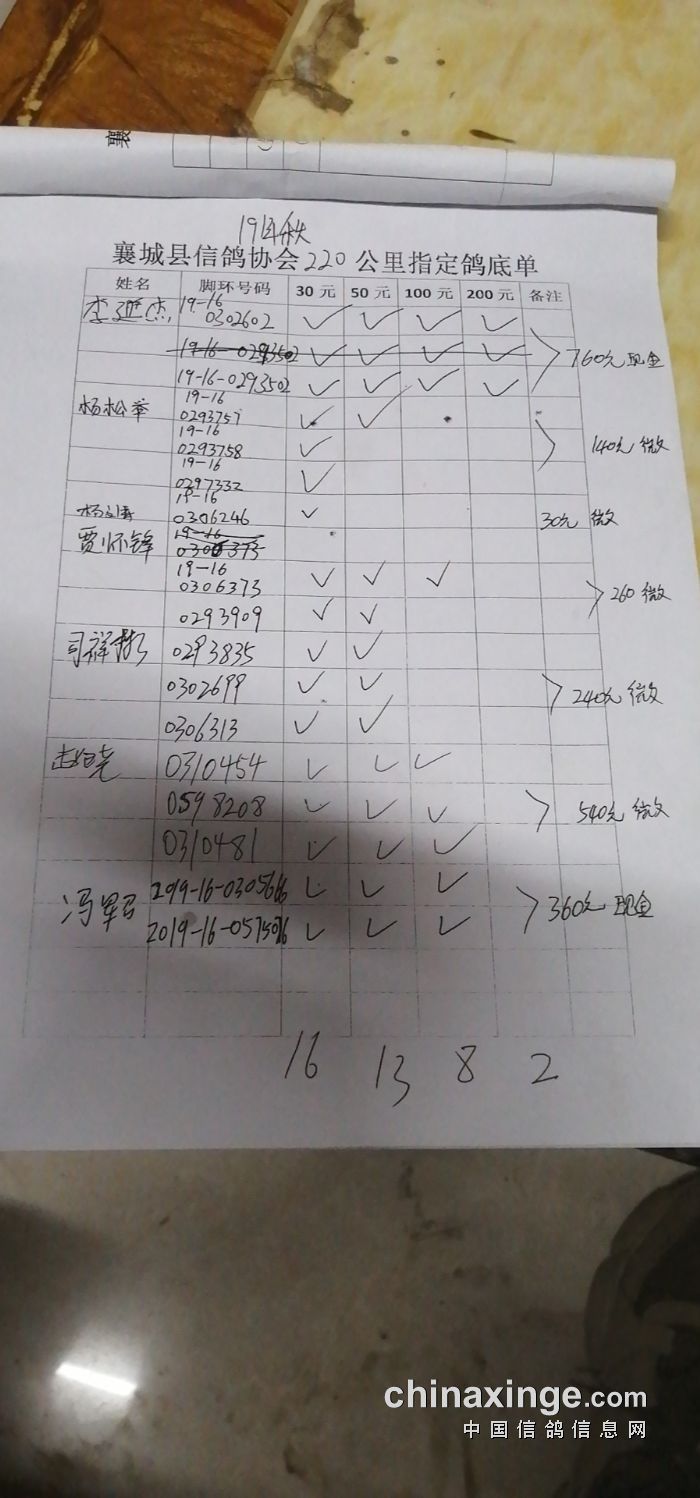 19年秋
襄城县信鸽协会220公里指定鸽底单
姓名 脚环号码 30元 50元 100元 200元 备注
李延杰 19-16 0302602 ✓ ✓ ✓ ✓
19-16-0293502 ✓ ✓ ✓ ✓ 760元 现金
19-16-0293502 ✓ ✓ ✓ ✓
杨松举 19-16 0293757 ✓ ✓
19-16 0293758 ✓ 140元 微
19-16 0297332 ✓
19-16 0306246 ✓ 30元 微
贾怀锋 19-16 0306373
19-16 0306373 ✓ ✓ ✓ 260 微
0293909 ✓ ✓
司祥 0293835 ✓ ✓
0302699 ✓ ✓ 240元 微
0306313 ✓ ✓
0310454 ✓ ✓ ✓
0598208 ✓ ✓ ✓ 540元 微
0310481 ✓ ✓ ✓
冯军 2019-16-0305666 ✓ ✓ ✓ 360元 现金
2019-16-0575076 ✓ ✓ ✓
16 13 8 2
chinaxinge.com
中国信鸽信息网